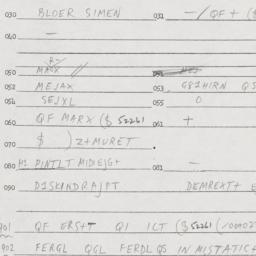 030 BLOER SIMEN 031 —/ QF + ($
040 —
050
052 MEJAX 053 G81HIRN QS
054 SEJXL 055 0
060 QF MARX ($ 52261 061 +
070 $ ) Z+MURET.
080 H1 PINTLT MIDIEJG+ 081 —
090 DISKINDRAJPT DEMREXT+ E
901 QF ERS+T QI ICT ($52261 (100027
902 FERGL QGL FERDL QS IN MISTATIC+